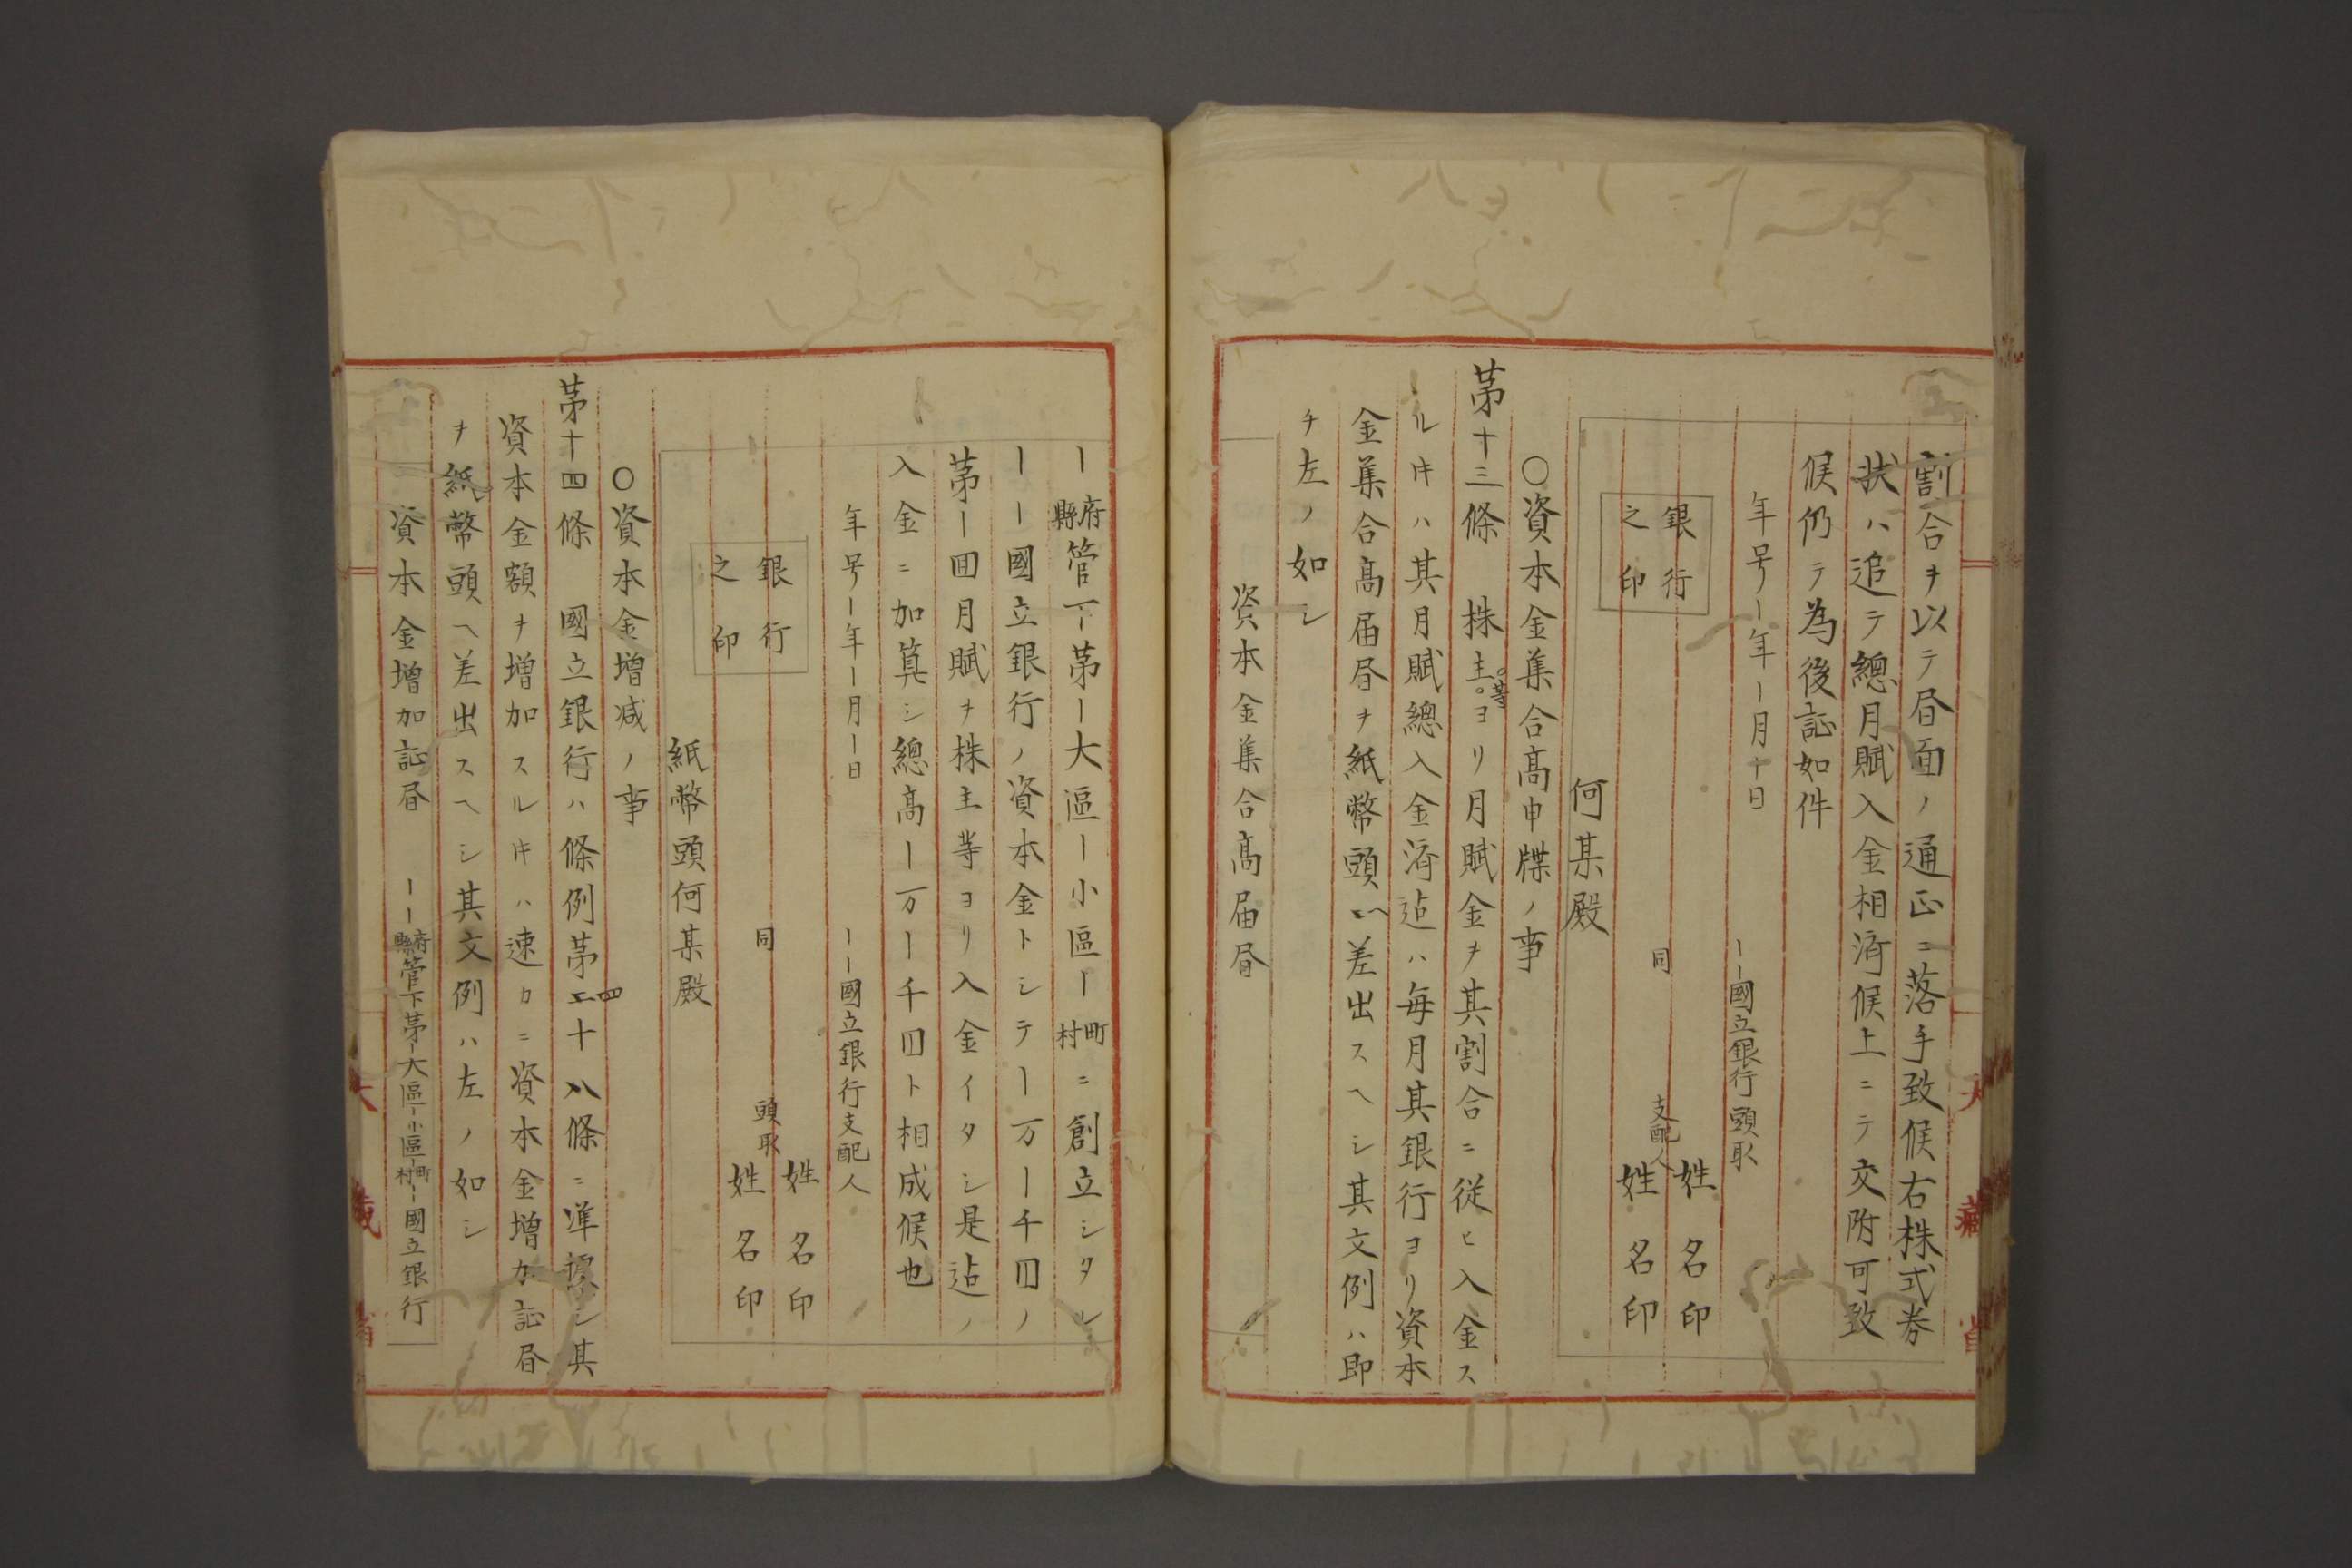 割合ヲ以テ昼面ノ通正ニ落手致候右株式券
状ハ追テ總月賦入金相済候上ニテ交附可致
候仍テ為後証如件
年号ー年ー月十日
ーー國立銀行頭取
姓名印
同
支配人
姓名印
銀行
之印
何某殿
〇資本金集合高申牒ノ事
第十三條　株主等ヨリ月賦金ヲ其割合ニ従ヒ入金ス
ル㕝ハ其月賦總入金済迠ハ毎月其銀行ヨリ資本
金集合高届書ヲ紙幣頭へ差出スヘシ其文例ハ即
チ左ノ如シ
資本金集合高届書
ー府縣管下第ー大區ー小區ー町村ニ創立シタル
ーー國立銀行ノ資本金トシテー万ー千円ノ
第ー囬月賦ヲ株主等ヨリ入金イタシ是迠ノ
入金ニ加算シ總高ー万ー千円ト相成候也
年号ー年ー月ー日
ーー國立銀行支配人
姓名印
同
頭取
姓名印
銀行
之印
紙幣頭何某殿
〇資本金増減ノ事
第十四條　國立銀行ハ條例第四十八條ニ準據シ其
資本金額ヲ増加スル㕝ハ速カニ資本金増加証書
ヲ紙幣頭へ差出スヘシ其文例ハ左ノ如シ
資本金増加証書
ーー府縣管下第ー大區ー小區ー町村ー國立銀行
大藏省
大藏省